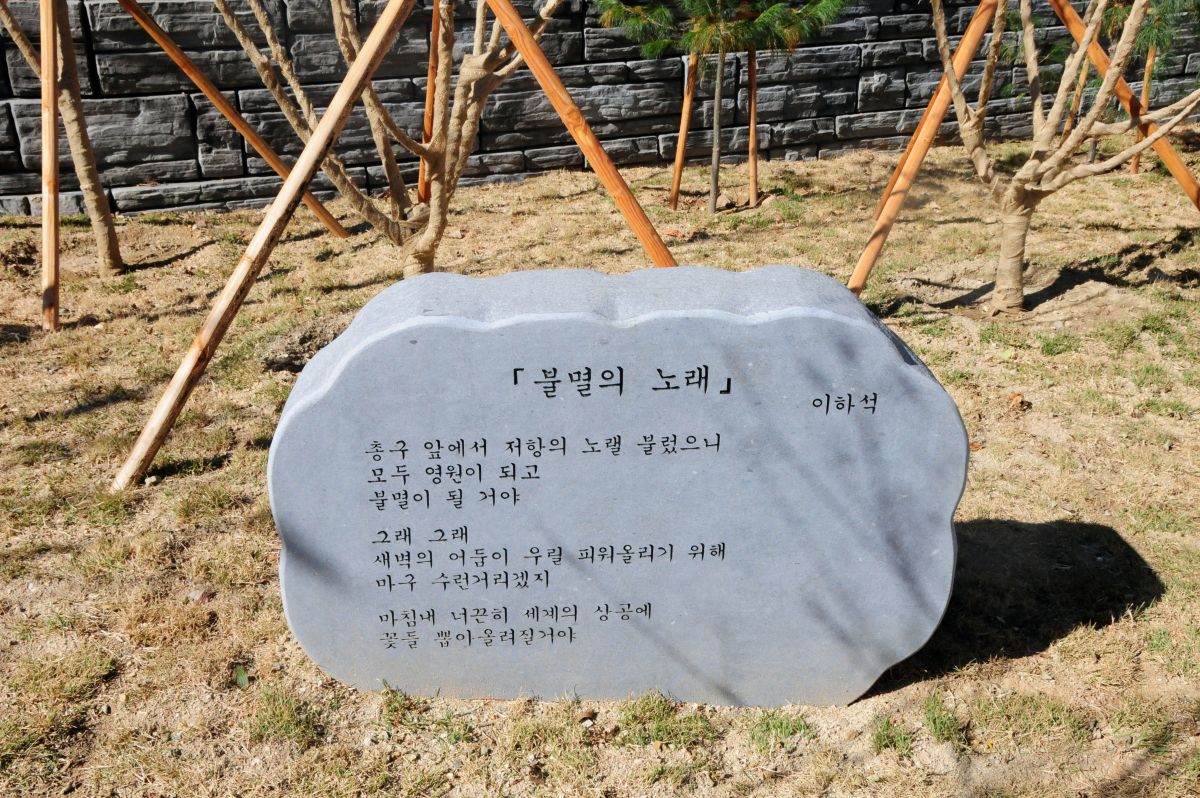 「불멸의 노래」
이하석
총구 앞에서 저항의 노랠 불렀으니
모두 영원이 되고
불멸이 될 거야
그래 그래
새벽의 어둠이 우릴 피워올리기 위해
마구 수런거리겠지
마침내 너끈히 세계의 상공에
꽃들 뽑아올려질거야